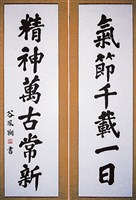 氣節千載一日
精神萬古常新
谷風翔書